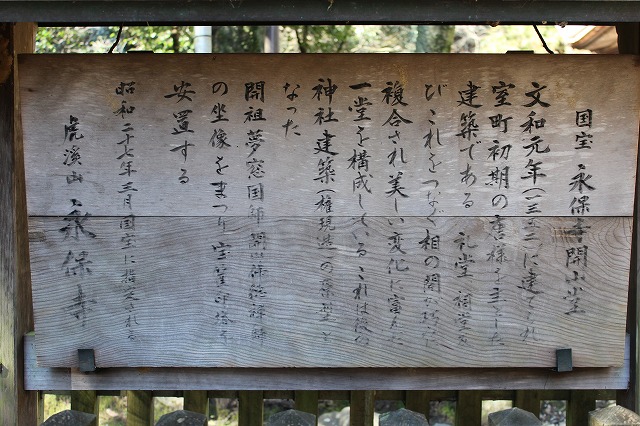 国宝 永保寺開山堂
文和元年(一三五二)に建てられ
室町初期の唐様を主とした
建築である 礼堂 祠堂及
び これをつなぐ相の間が
複合され美しい変化に富んだ
一堂を構成している これは後の
神社建築(権現造)の原型と
なった
開祖夢窓国師 開山佛徳禅師
の坐像をまつり 宝篋印塔を
安置する
昭和二十七年三月国宝に指定される
虎溪山 永保寺